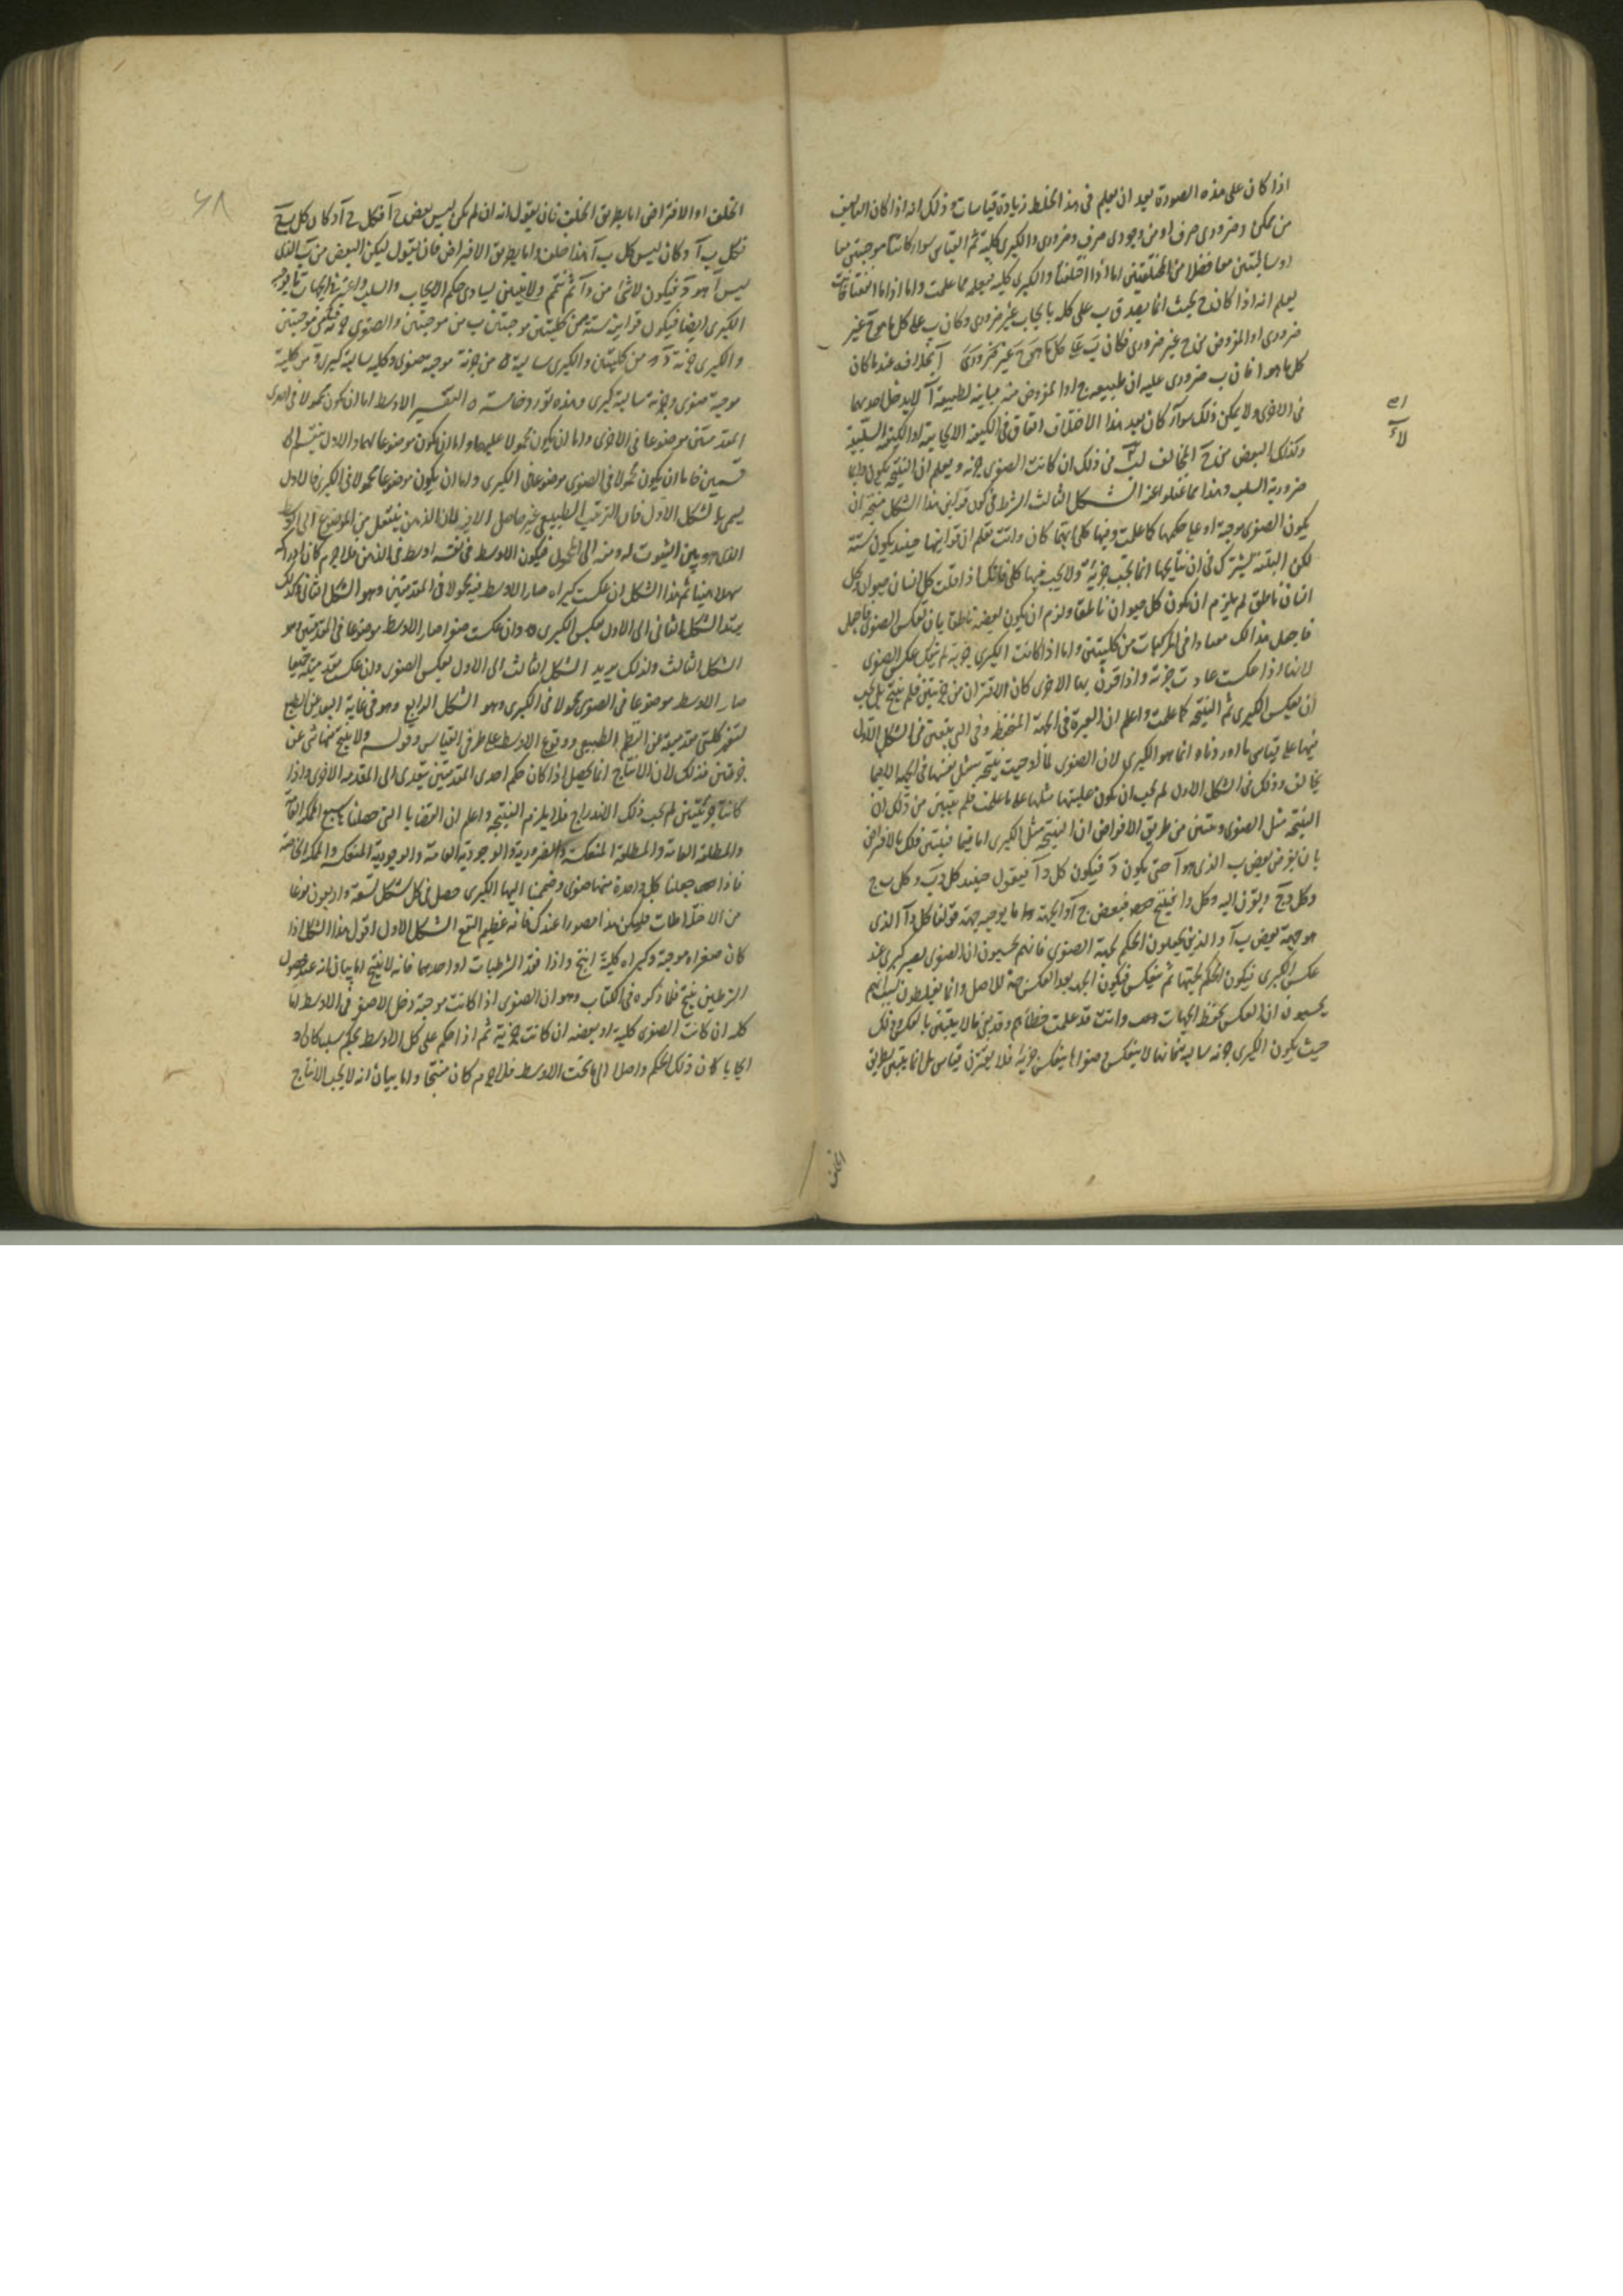 اذا كان على هذه الصورة بعد ان يعلم فى هذا الخلط زيادة قياسات و ذلك انه اذا كان التاليف
من ممكن و ضرورى صرف او من وجودى صرف و ضرورى والكبرى كلية تم القياس سواء كانتا موجبتين معا
او سالبتين معا فضلا من المختلفتين اما اذا اختلفتا والكبرى كلية فيعلم مما علمت واما اذا ما اتفقتا
يعلم انه اذا كان ج بحيث انما يصدق ب على كله بايجاب غير ضرورى وكان ب على كل ما هو ج غير
ضرورى او المفروض من ج غير ضرورى فكان ب على كل ما هو ج غير ضرورى آ بخلافه عند ما كان
كل ما هو آ فان ب ضرورى عليه ان طبيعة ج او المفروض منه مباينة لطبيعة آ لا يدخل احديهما
فى الاخرى ولا يمكن ذلك سواء كان بعد هذا الاختلاف اتفاق فى الكيفية الايجابية او الكيفية السلبية
وكذلك البعض من ج المخالف لب فى ذلك ان كانت الصغرى جزئية و يعلم ان النتيجة يكون دايما
ضرورية السلب وهذا مما غفلوا عنه الشكل الثالث الشرط فى كون قراين هذا الشكل منتجة ان
يكون الصغرى موجبة او على حكمها كما علمت وفيها كلى ايهما كان وانت تعلم ان قراينها حينئذ يكون ستة
لكن الستة يشترك فى ان نتايجها انما يجب جزئية ولا يجب فيها كلى فانك اذا قلت كل انسان حيوان وكل
انسان ناطق لم يلزم ان يكون كل حيوان ناطقا ولزم ان يكون بعضه ناطقا بان تعكس الصغرى فاجعل
فاجعل هذا لك معيارا فى المركبات من كليتين واما اذا كانت الكبرى جزئية لم يمكنك عكس الصغرى
لانها اذا عكست عادت جزئية واذا قرن بها الاخرى كان الاقتران من جزئيتين فلم ينتج بل يجب
ان يعكس الكبرى ثم النتيجة كما علمت واعلم ان العبرة فى الجهة المنحفظة وفى التى يتعين فى الشكل الاول
فيها على قياس ما اوردناه انما هو الكبرى لان الصغرى لما
يخالف و ذلك فى الشكل الاول لم يجب ان يكون عكسها مثلها على ما علمت فلم يتبين من ذلك ان
النتيجة مثل الصغرى و يتبين من طريق الافتراض ان النتيجة مثل الكبرى اما فيما فيتبين ذلك بالافتراض
بان يفرض بعض ب الذى هو آ حتى يكون د فيكون كل د آ فيقول حينئذ كل د ب و كل ب ج
وكل د ج و يقرن اليه وكل د آ فينتج فبعض ج آ والجهة ما يوجبه جهة قولنا كل د آ الذى
هو جهة بعض ب آ والذين يجعلون الحكم لجهة الصغرى فانهم يحسبون ان الصغرى يصير كبرى عند
عكس الكبرى فيكون الحكم لجهتها ثم ينعكس فيكون الجهة بعد العكس جهة الاصل وانما يغلطون بسبب انهم
يحسبون ان العكس يحفظ الجهات وانت قد علمت خطأهم و قد بقى ما لا يتبين بالعكس و ذلك
حيث يكون الكبرى جزئية سالبة فانها لا ينعكس و صغراها ينعكس جزئية فلا يقترن قياس بل انما يتبين بطريق
الخلف
الخلف او الافتراض اما بطريق الخلف فبان يقول انه ان لم يكن ليس بعض ج آ فكل ج آ و كان كل ب ج
فكل ب آ و كان ليس كل ب آ هذا خلف واما بطريق الافتراض فبان يقول ليكن البعض من ب الذى
ليس آ هو د فيكون لا شئ من د آ ثم تتم ولا يغفلن تساوى حكم الايجاب والسلب واعتبر فى الجهات ما يوجبه
الكبرى ايضا فيكون قراين ستة من كليتين موجبتين ب من موجبتين والصغرى جزئية من موجبتين
والكبرى جزئية د من كليتين والكبرى سالبة ه من جزئية موجبة صغرى وكلية سالبة كبرى و من كلية
موجبة صغرى وجزئية سالبة كبرى وهذه تورد خامسة التفسير الاوسط اما ان يكون محمولا فى احدى
المقدمتين موضوعا فى الاخرى واما ان يكون محمولا عليهما واما ان يكون موضوعا لهما والاول ينقسم الى
قسمين فاما ان يكون محمولا فى الصغرى موضوعا فى الكبرى واما ان يكون موضوعا محمولا فى الكبرى فالاول
يسمى بالشكل الاول فان الترتيب الطبيعى غير حاصل الا فيه لان الذهن ينتقل من الموضوع الى الاوسط
الذى هو بين الثبوت له ومنه الى المحمول فيكون الاوسط فى نفسه اوسط فى الذهن فلا جرم كان ادراكه
سهلا هينا ثم هذا الشكل ان عكست كبراه صار الاوسط فيه محمولا فى المقدمتين وهو الشكل الثانى ولذلك
يرتد الشكل الثانى الى الاول بعكس الكبرى وان عكست صغراه صار الاوسط موضوعا فى المقدمتين هو
الشكل الثالث ولذلك يرتد الشكل الثالث الى الاول بعكس الصغرى وان عكست مقدمتيه جميعا
صار الاوسط موضوعا فى الصغرى محمولا فى الكبرى وهو الشكل الرابع وهو فى غاية البعد عن الطبع
لتغير كلتى مقدمتيه عن النظم الطبيعى ووقوع الاوسط على طرفى القياس وقوله ولا ينتج منها شئ عن
جزئيتين فذلك لان الانتاج انما يحصل اذا كان حكم احدى المقدمتين يتعدى الى المقدمة الاخرى واذا
كانتا جزئيتين لم يجب ذلك الاندراج فلا يلزم النتيجة واعلم ان القضايا التى حصلناها سبع الممكنة العامة
والمطلقة العامة والمطلقة المنعكسة والضرورية والوجودية العامة والوجودية المنعكسة والممكنة الخاصة
فاذا جعلنا كل واحدة منها صغرى وضممنا اليها الكبرى حصل فى كل شكل تسعة واربعون نوعا
من الاختلاطات فليكن هذا مصورا عندك فانه عظيم النفع الشكل الاول اقول هذا الشكل اذا
كان صغراه موجبة وكبراه كلية انتج واذا فقد الشرطيات او احدهما فانه لا ينتج اما بيان انه عند حصول
الشرطين ينتج فلما ذكره فى الكتاب وهو ان الصغرى اذا كانت موجبة دخل الاصغر فى الاوسط اما
كله ان كانت الصغرى كلية او بعضه ان كانت جزئية ثم اذا حكم على كل الاوسط بحكم سلبا كان او
ايجابا كان ذلك الحكم واصلا الى ما تحت الاوسط فلا جرم كان منتجا واما بيان انه لا يجب الانتاج